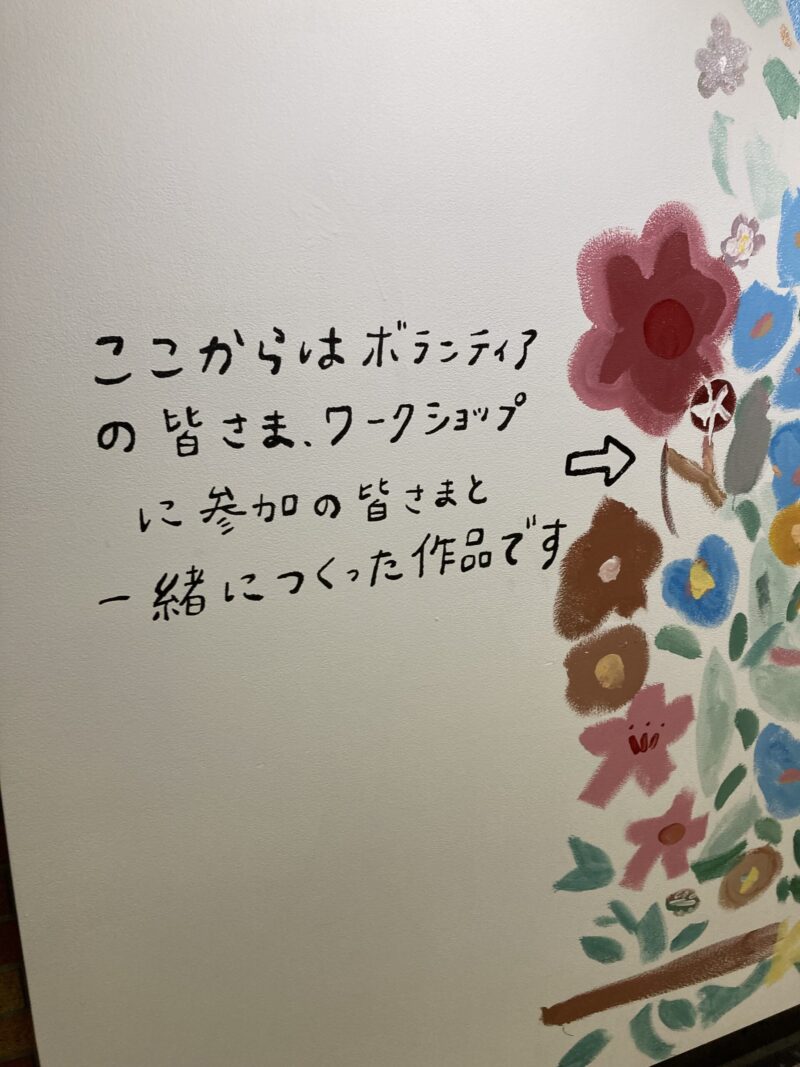 ここからはボランティア
の皆さま、ワークショップ
に参加の皆さまと
一緒につくった作品です